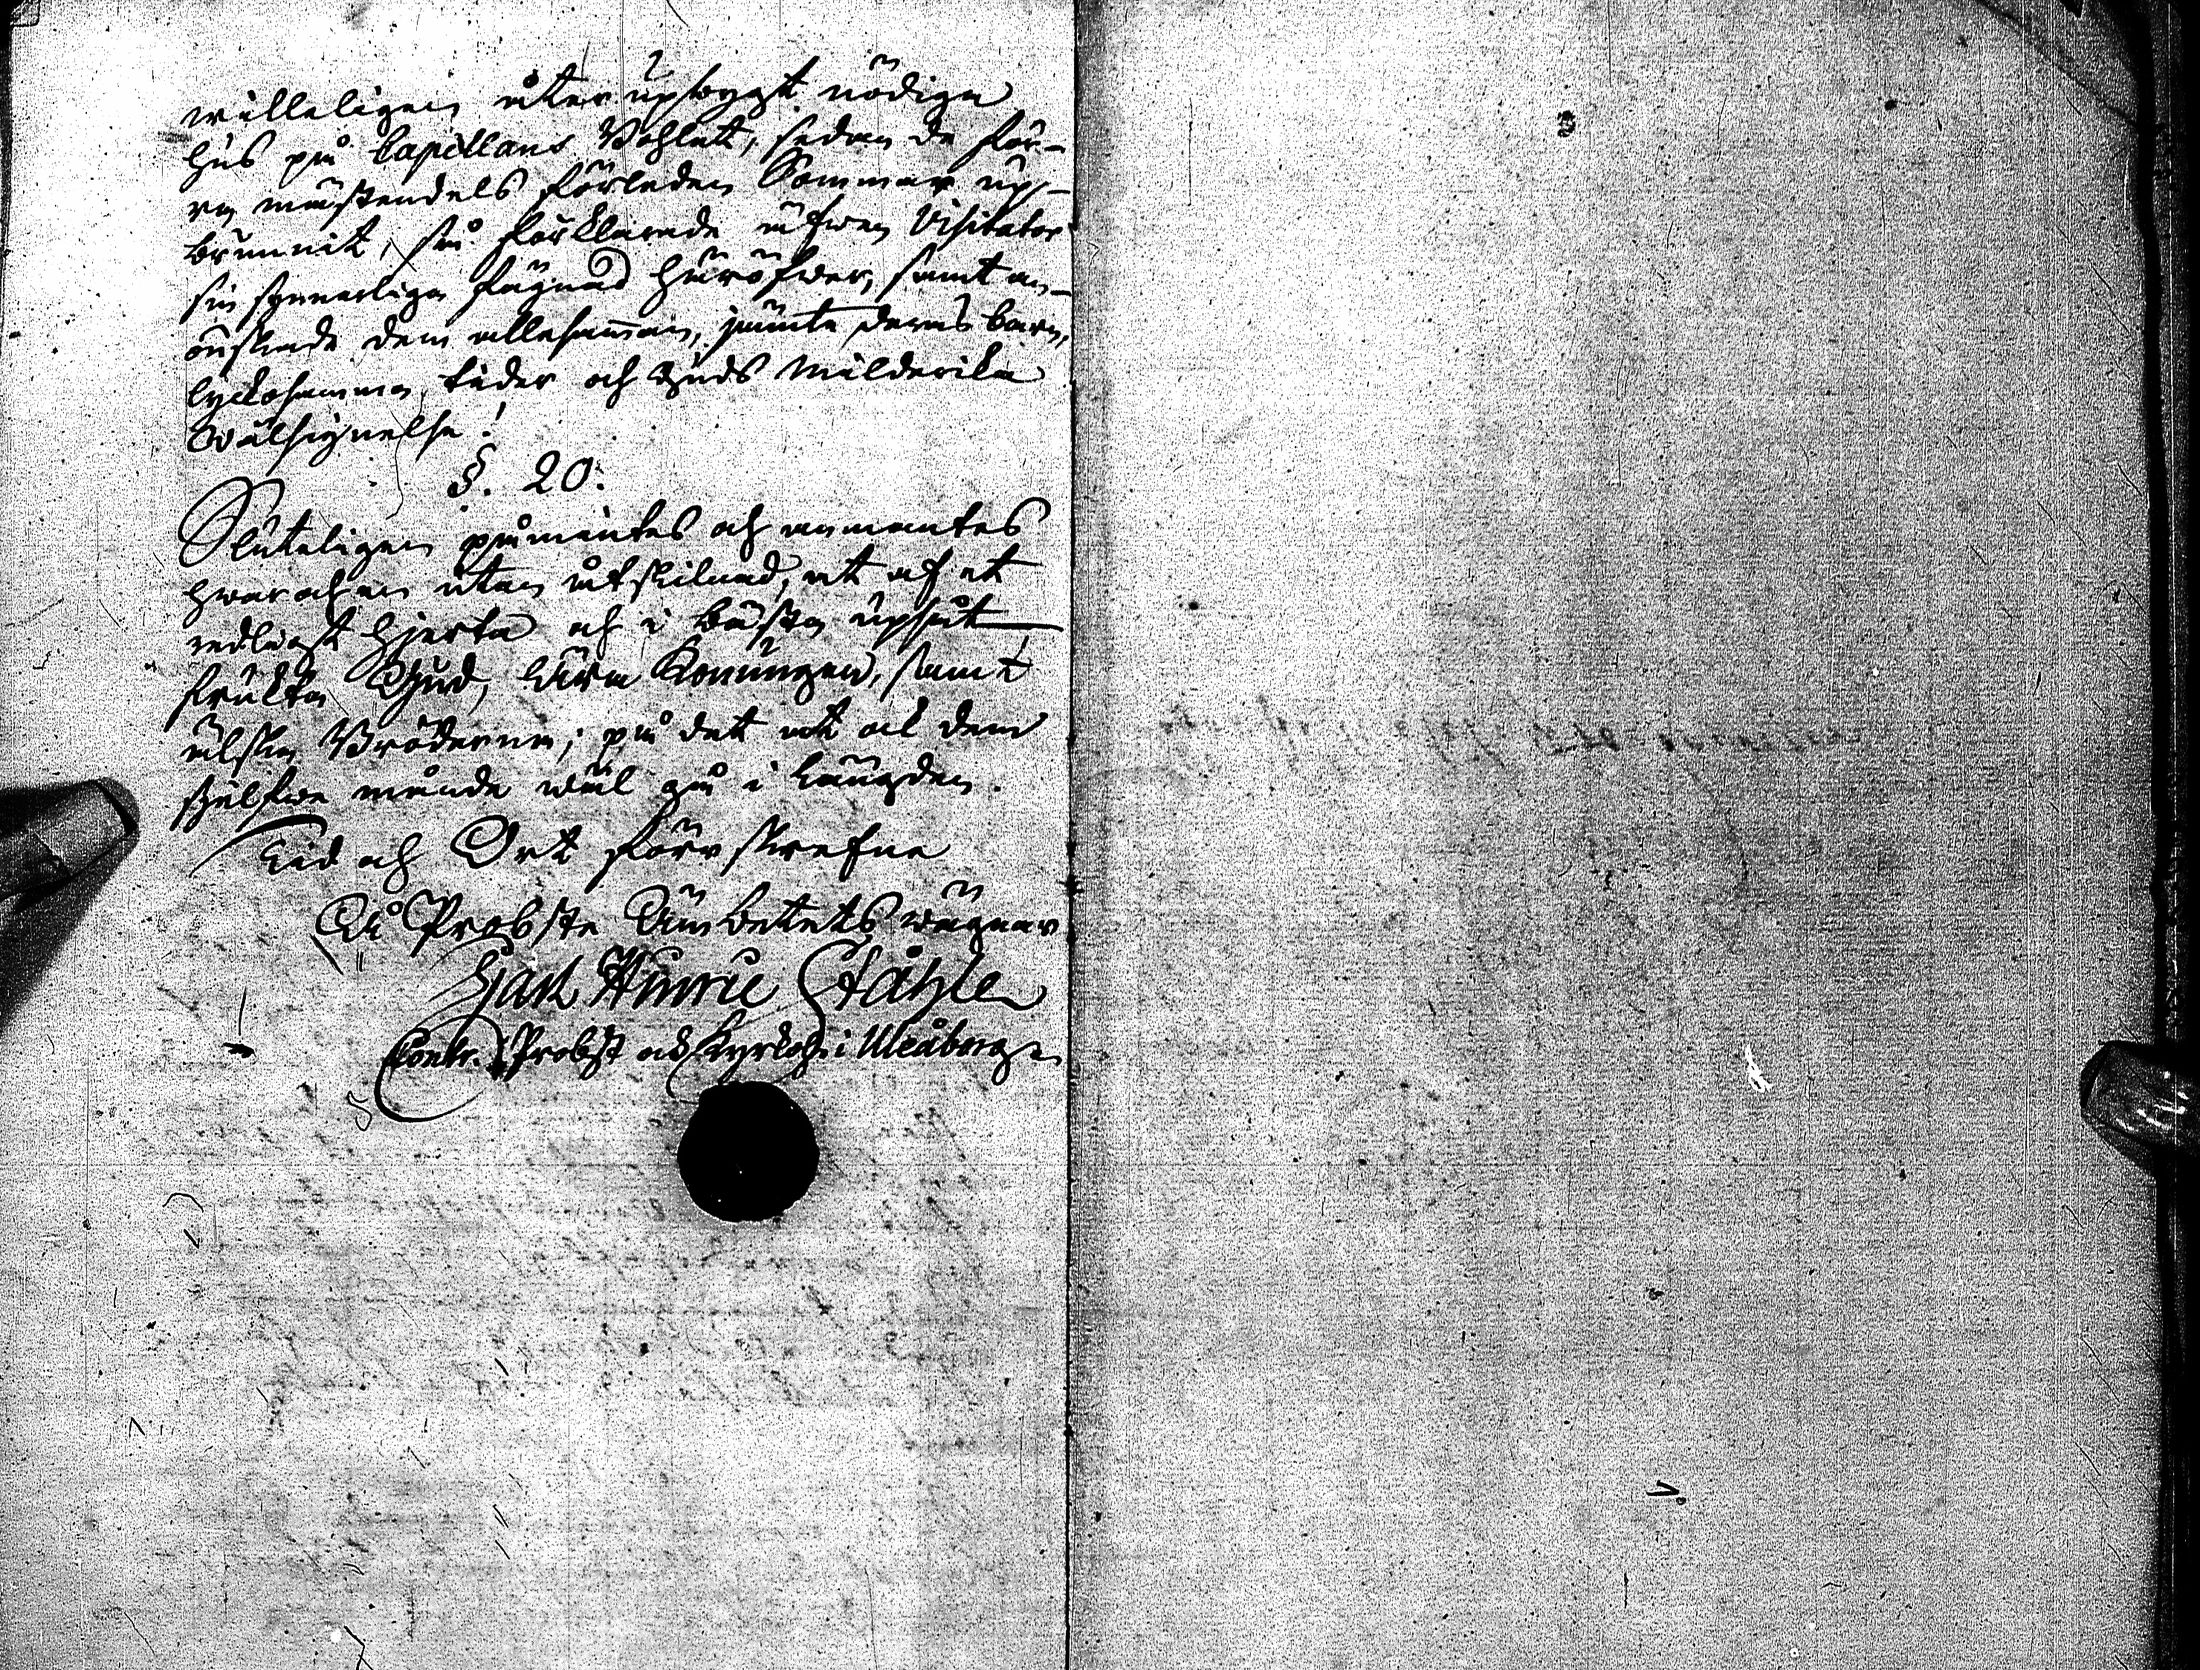 willeligen åter upbygt nödiga
hus på Capellans Bohlet, sedan de för-
ra mästendels förleden Sommar up-
brunnit, så förklarade äfwen Visitator
sin synnerliga fägnad häröfwer, samt an-
önskade dem allesam̄an, jämte deras barn,
lyckosamma tider och Guds Milderika
Wälsignelse!
§. 20.
Sluteligen påmintes och anmantes
hwar och en utan åtskilnad, at af et
redligt hjerta och i bästa upsåt
frukta Gud, ära Konungen, samt
älska Bröderna; på det at al dem
sjelfwe månde wäl gå i längden.
Tid och Ort förr skrefne
På Probste Ämbetets wägnar
Ståhle
Contr. Probst och Kyrkoh. i Uleåborg